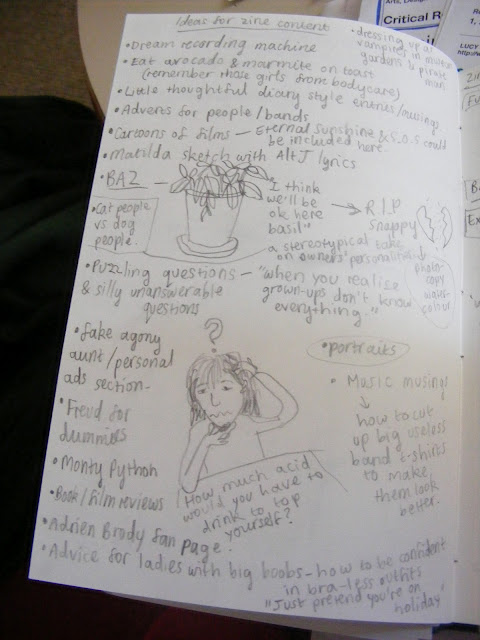 Ideas for zine content
• Dream recording machine
• Eat avocado & marmite on toast
(remember those girls from bodycare)
• Little thoughtful diary style entries/musings
• Adverts for people/bands
• Cartoons of films – Eternal sunshine & S.O.S could
be included here.
• Matilda sketch with Alt J lyrics
• BAZ
"I think
we'll be
ok here
basil"
→ R.I.P
snappy
• Cat people
vs dog
people.
a stereotypical take
on owners' personalities
• Puzzling questions –
& silly unanswerable
questions
"when you realise
grown-ups don't know
everything."
photo-
copy
water-
colour
• fake agony
aunt/personal
ads section.
• Freud for
dummies
• Monty Python
• Book/film reviews
?
How much acid
would you have to
drink to top
yourself?
• portraits
• Music musings
↓
how to cut
up big useless
band t-shirts
to make
them look
better.
• Adrien Brody fan page.
• Advice for ladies with big boobs – how to be confident
in bra-less outfits
"Just pretend you're on
holiday"
• dressing up as
vampires in
gardens & pirate
man
Arts, Design
Critical R
LUCY